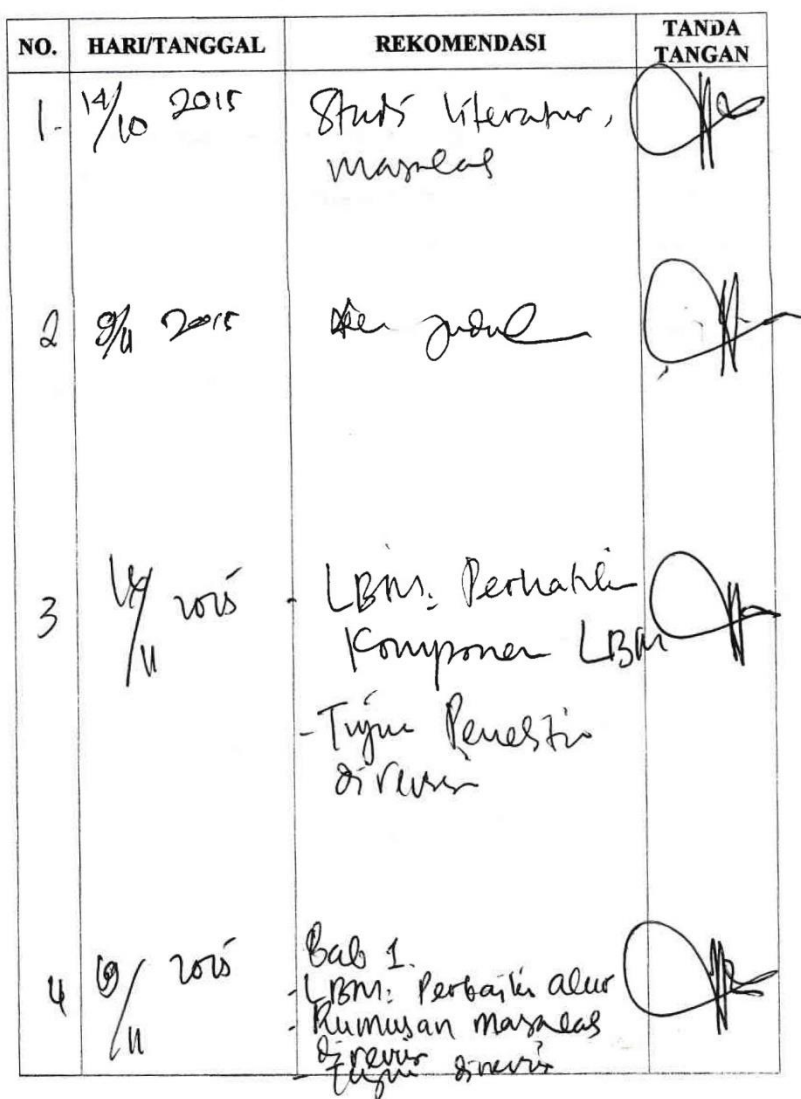 NO. HARI/TANGGAL REKOMENDASI TANDA TANGAN
1. 14/10 2015 Studi literatur,
masalah
2 9/11 2015 Acc judul
3 2015 - LBM: Perhatikan
Komponen LBM
- Tujuan Penelitian
direvisi
4 19/11 2015 Bab 1.
- LBM: Perbaiki alur
- Rumusan masalah
direvisi
- Tujuan direvisi